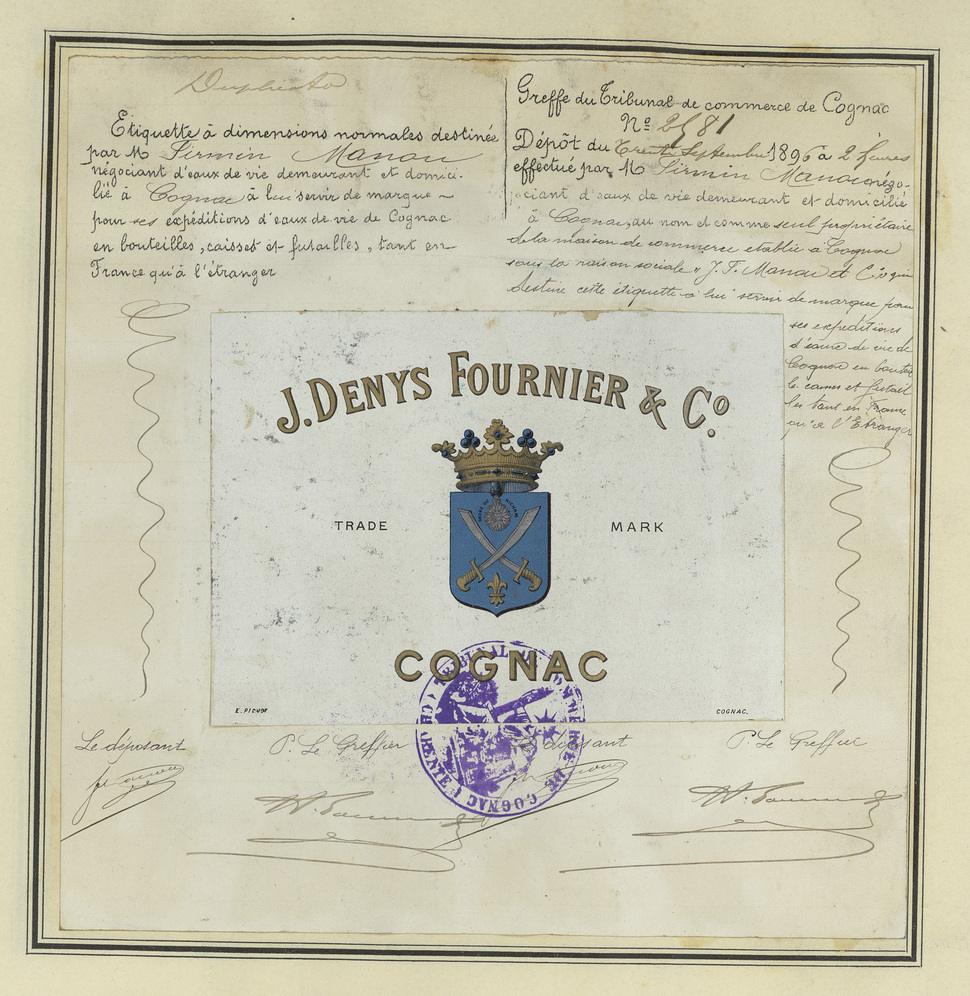 Duplicata
Etiquette à dimensions normales destinée
par Mr Firmin Manau
négociant d'eaux de vie demeurant et domici-
lié à Cognac à lui servir de marque
pour ses expéditions d'eaux de vie de Cognac
en bouteilles, caisses et futailles, tant en
France qu'à l'étranger
Greffe du Tribunal de commerce de Cognac
No 2581
Dépôt du Trente Septembre 1896 à 2 heures
effectué par Mr Firmin Manau négo-
ciant d'eaux de vie demeurant et domicilié
à Cognac, au nom et comme seul propriétaire
de la maison de commerce etablie à Cognac
sous la raison sociale "J. F. Manau et Co qui
destine cette étiquette à lui servir de marque pour
ses expeditions
d'eaux de vie de
Cognac en bouteil
les caisses et futail
les tant en France
qu'à l'Etranger
J. DENYS FOURNIER & Co.
TRADE MARK
COGNAC
E. PICHOT
COGNAC.
TRIBUNAL DE COMMERCE DE COGNAC (CHARENTE)
Le déposant
P. Le Greffier
Le déposant
P. Le Greffier